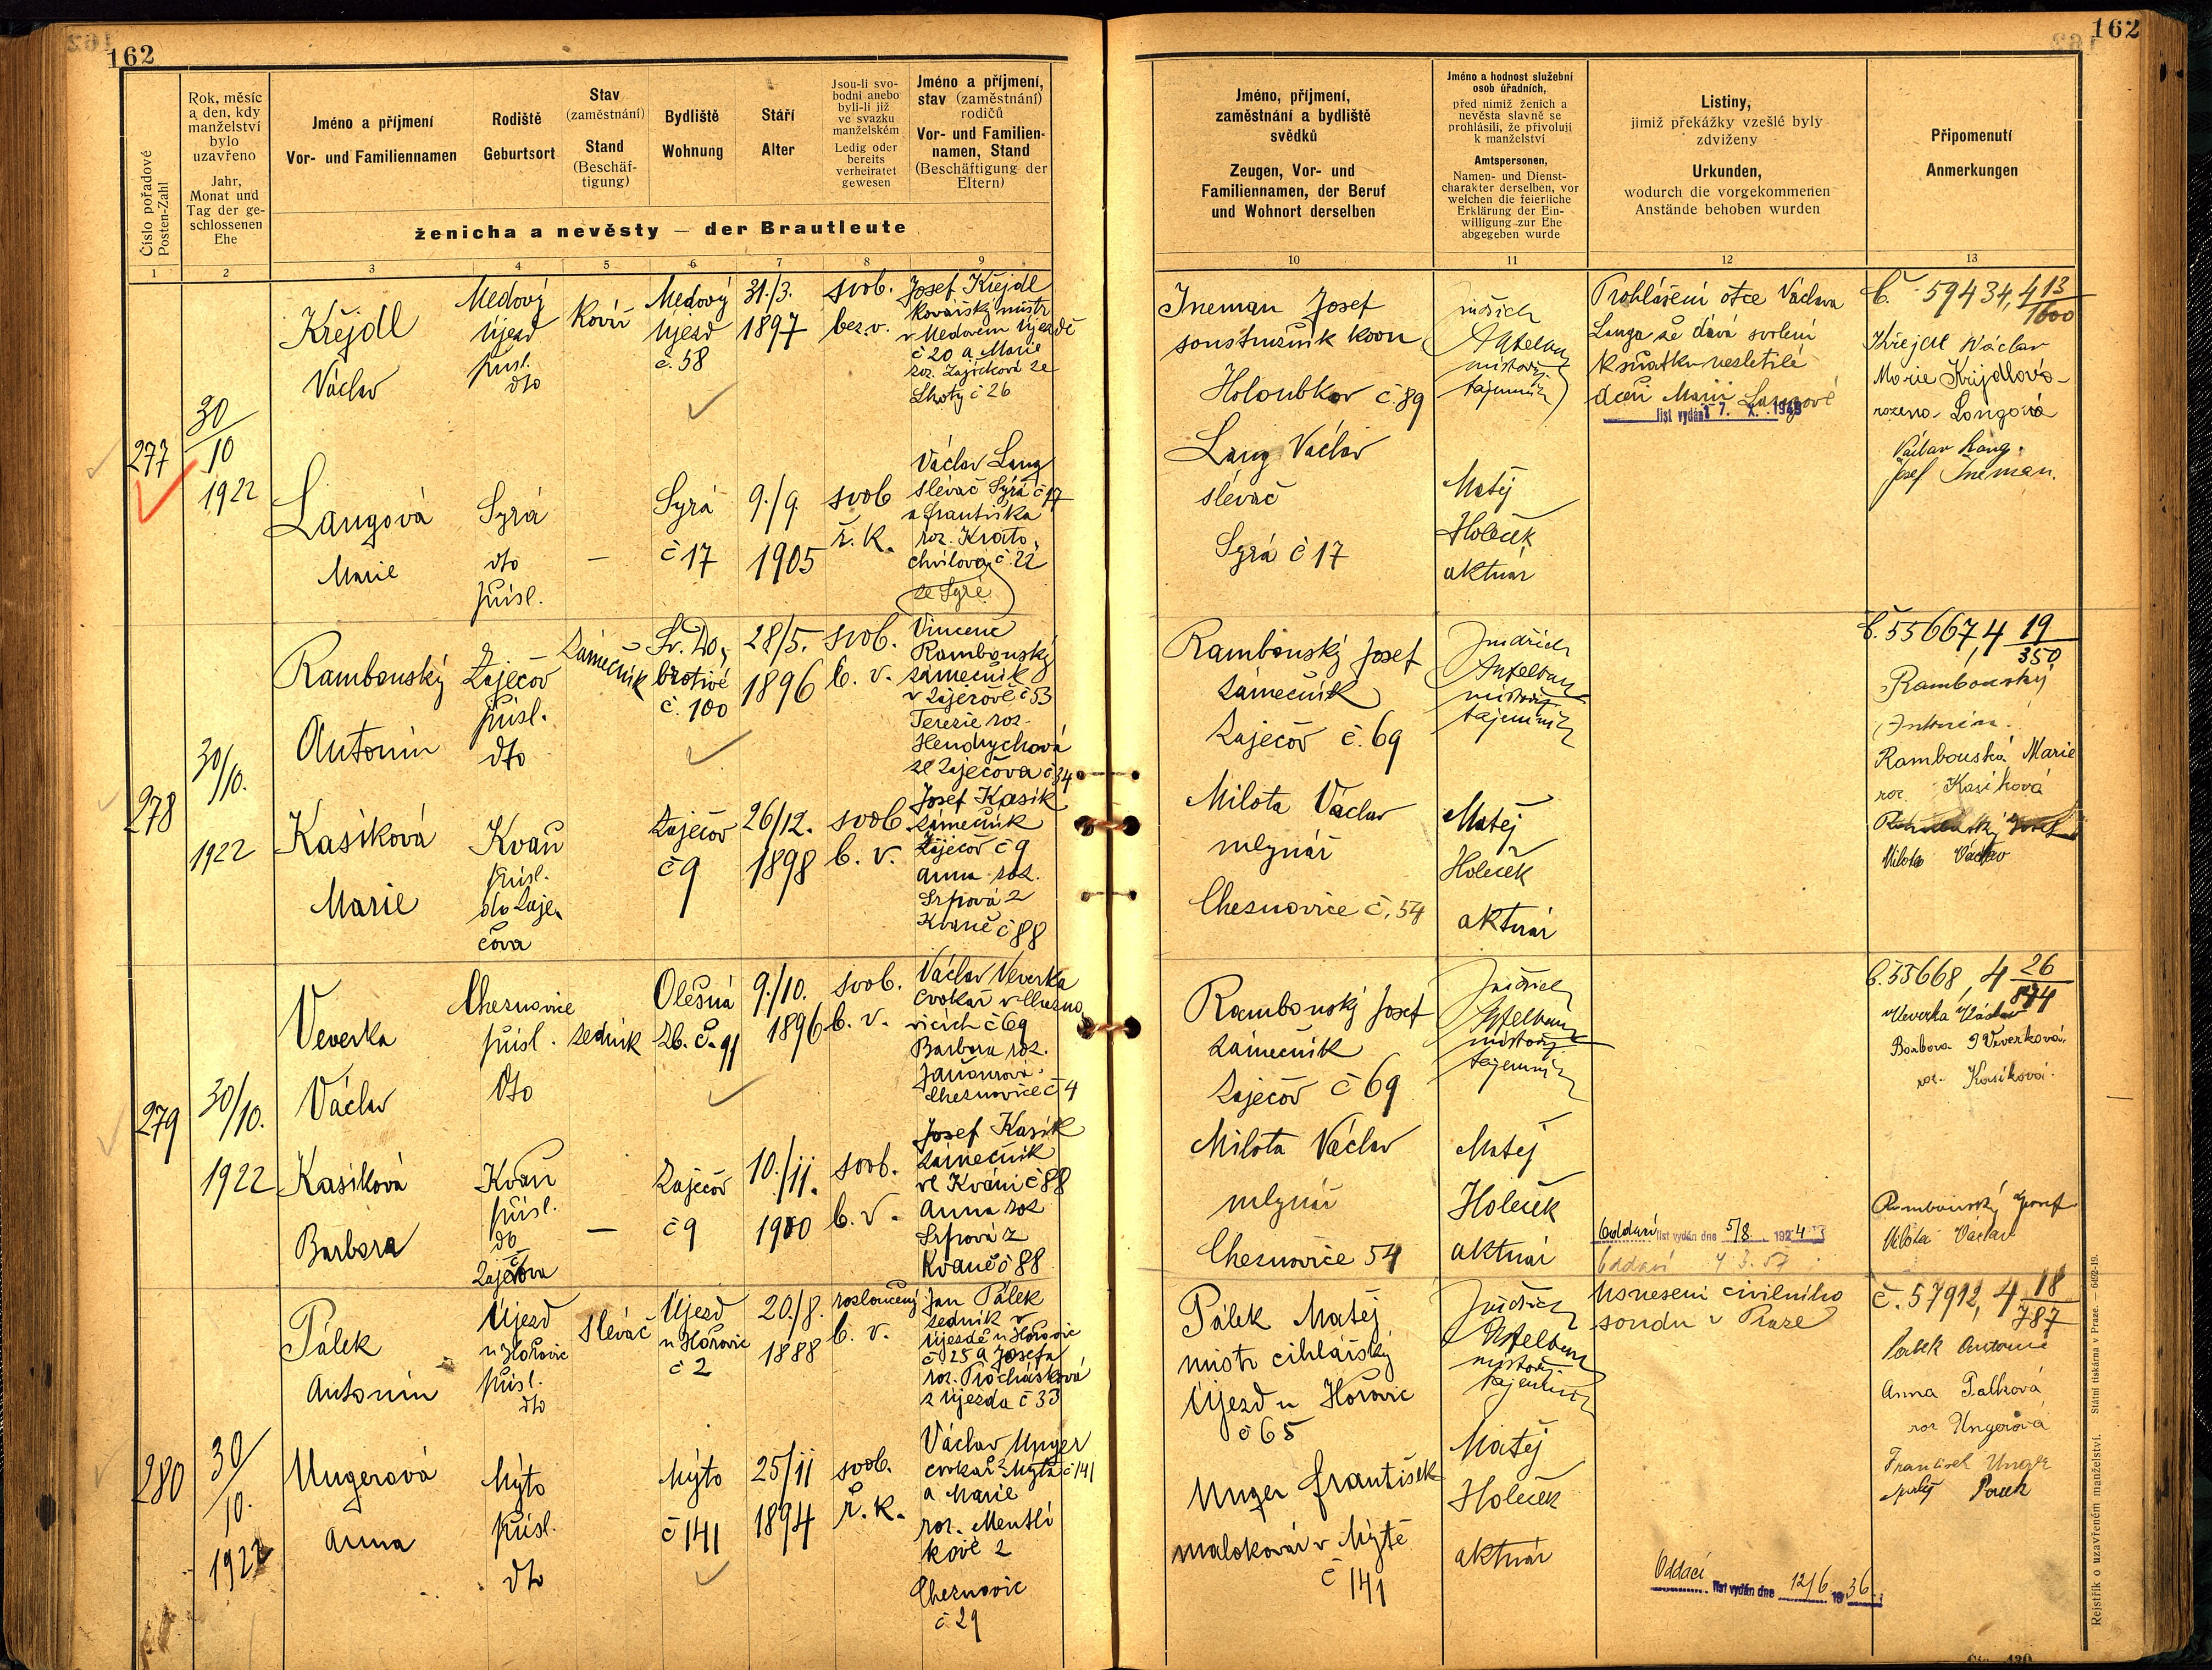 162
162
Číslo pořadové
Posten-Zahl
Rok, měsíc
a den, kdy
manželství
bylo
uzavřeno
Jahr,
Monat und
Tag der ge-
schlossenen
Ehe
Jméno a příjmení
Vor- und Familiennamen
Rodiště
Geburtsort
Stav
(zaměstnání)
Stand
(Beschäf-
tigung)
Bydliště
Wohnung
Stáří
Alter
Jsou-li svo-
bodni anebo
byli-li již
ve svazku
manželském
Ledig oder
bereits
verheiratet
gewesen
Jméno a příjmení,
stav (zaměstnání)
rodičů
Vor- und Familien-
namen, Stand
(Beschäftigung der
Eltern)
ženicha a nevěsty — der Brautleute
Jméno, příjmení,
zaměstnání a bydliště
svědků
Zeugen, Vor- und
Familiennamen, der Beruf
und Wohnort derselben
Jméno a hodnost služební
osob úřadních,
před nimiž ženich a
nevěsta slavně se
prohlásili, že přivolují
k manželství
Amtspersonen,
Namen- und Dienst-
charakter derselben, vor
welchen die feierliche
Erklärung der Ein-
willigung zur Ehe
abgegeben wurde
Listiny,
jimiž překážky vzešlé byly
zdviženy
Urkunden,
wodurch die vorgekommenen
Anstände behoben wurden
Připomenutí
Anmerkungen
1 2 3 4 5 6 7 8 9 10 11 12 13
277
30/10
1922
Křejdl
Václav
Medový
Újezd
přísl.
dto
Kovář
Medový
Újezd
č. 58
31./3.
1897
svob.
bez v.
Josef Křejdl
kovářský mistr
v Medovém Újezdě
č 20 a Marie
roz. Zajíčková ze
Lhoty č 26
Langová
Marie
Syrá
dto
přísl.
—
Syrá
č 17
9./9.
1905
svob
ř. k.
Václav Lang
slévač Syrá č 17
a Františka
roz. Krato-
chvílová č. 22
ze Syré
Ineman Josef
soustružník kovu
Holoubkov č. 89
Lang Václav
slévač
Syrá č 17
Jindřich
místodrž.
tajemník
Matěj
Holeček
aktuár
Prohlášení otce Václava
Langa že dává svolení
k sňatku nezletilé
dceři Marii Langové
list vydán 17. X. 1949
č. 59434, 4 13/1600
Křejdl Václav
Marie Křejdlová
rozená Langová
Václav Lang.
Josef Ineman.
278
30/10.
1922
Rambouský
Antonín
Zaječov
přísl.
dto
Zámečník
Sv. Do-
brotivé
č. 100
28/5.
1896
svob.
b. v.
Vincenc
Rambouský
zámečník
v Zaječově č 53
Terezie roz.
Hendrychová
ze Zaječova č 34
Kasíková
Marie
Kvaň
přísl.
do Zaje-
čova
Zaječov
č 9
26/12.
1898
svob
b. v.
Josef Kasík
zámečník
Zaječov č 9
Anna roz.
Srpová z
Kvaně č 88
Rambouský Josef
zámečník
Zaječov č. 69
Milota Václav
mlynář
Cheznovice č. 54
Jindřich
místodrž.
tajemník
Matěj
Holeček
aktuár
č. 55667, 4 19/350
Rambouský
Antonín.
Rambouská Marie
roz. Kasíková
Milota Václav
279
30/10.
1922
Veverka
Václav
Cheznovice
přísl.
dto
zedník
Olešná
zb. č. 91
9./10.
1896
svob.
b. v.
Václav Veverka
cvokař v Chezno-
vicích č 69
Barbora roz.
Cheznovice č 4
Kasíková
Barbora
Kvaň
přísl.
do
Zaječova
—
Zaječov
č 9
10./11.
1900
svob.
b. v.
Josef Kasík
zámečník
ve Kváni č 88
Anna roz
Srpová z
Kvaně č 88
Rambouský Josef
zámečník
Zaječov č 69
Milota Václav
mlynář
Cheznovice 54
Jindřich
místodrž.
tajemník
Matěj
Holeček
aktuár
Oddací list vydán dne 5/8. 1924
Oddací 4 3. 57
č. 55668, 4 26/874
Veverka Václav
Barbora Veverková,
roz. Kasíková.
Rambouský Josef
Milota Václav
280
30/10.
1922
Pálek
Antonín
Újezd
u Hořovic
přísl.
dto
slévač
Újezd
u Hořovic
č 2
20./8.
1888
rozloučený
b. v.
Jan Pálek
zedník v
Újezdě u Hořovic
č. 25 a Josefa
roz. Procházková
z Újezda č 33
Ungerová
Anna
Mýto
přísl.
dto
Mýto
č 141
25/11
1894
svob.
ř. k.
Václav Unger
cvokař z Mýta č 141
a Marie
roz. Mentlí
kové z
Cheznovic
č. 29
Pálek Matěj
mistr cihlářský
Újezd u Hořovic
č 65
Unger František
malokovář v Mýtě
č 141
Jindřich
místodrž.
tajemník
Matěj
Holeček
aktuár
Usnesení civilního
soudu v Praze
Oddací list vydán dne 12/6 1936.
č. 57912, 4 18/787
Pálek Antonín
Anna Palková
roz Ungerová
František Unger
Matěj Pálek
Rejstřík o uzavřeném manželství. Státní tiskárna v Praze. — 6492-19.